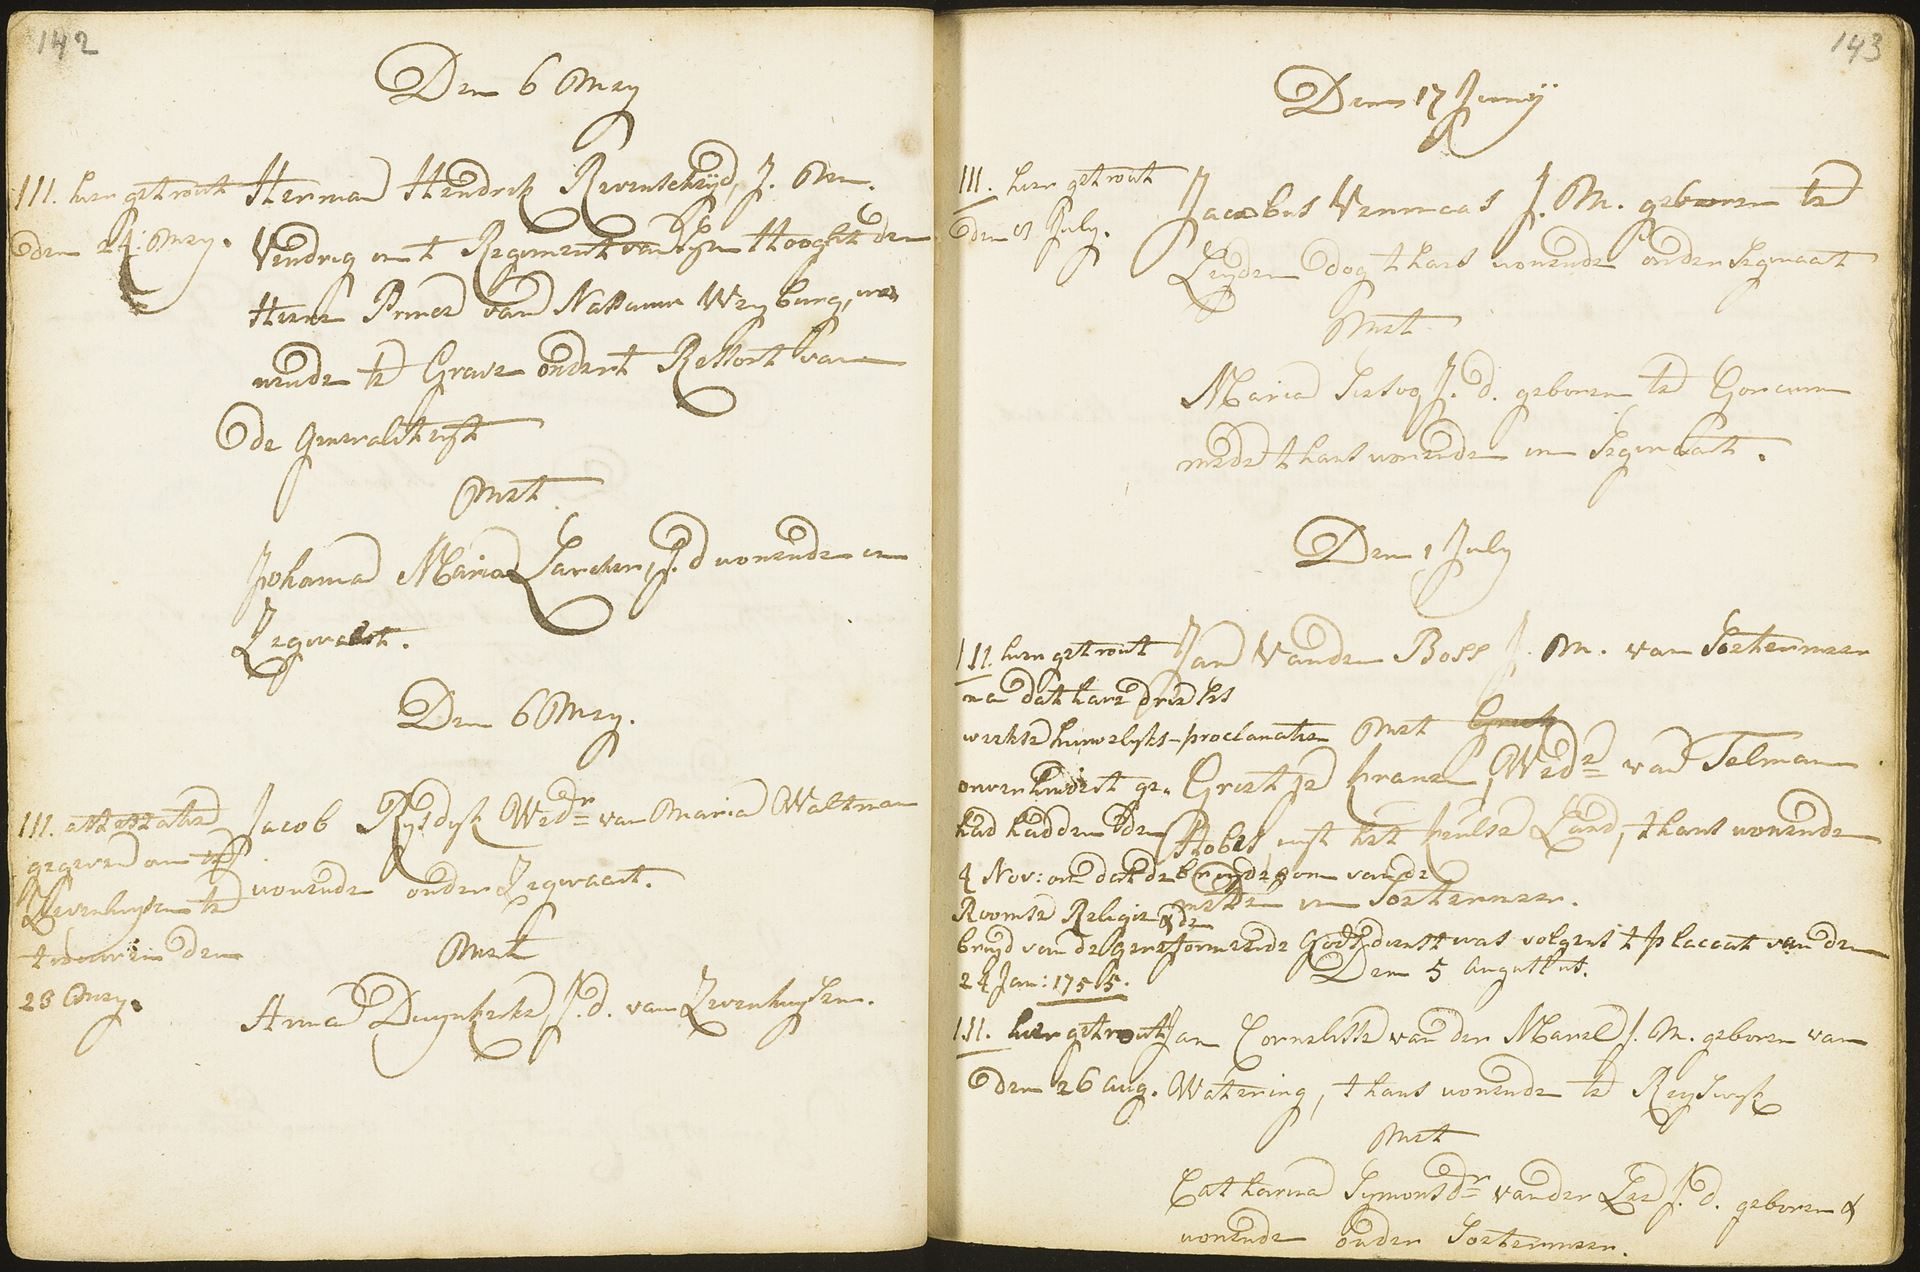 142
Den 6 Mey
111. hier getrout
den 24 Mey.
Herman Hendrik Revenscheyd, J. M.
Vendrig in 't Regiment van Zyn Hooght den
Heere Prince van Nassauw Weyburg, wo
nende te Grave onder 't Ressort van
de Generaliteyt
Met
Johanna Maria J. d wonende in
Zegwaert.
Den 6 Mey.
111. attestatie
gegeven om te
Zevenhuysen te
trouwen den
23 Mey.
Jacob Rysdyk Wedr van Maria Waltman
wonende onder Zegwaart.
Met
Anna J. d. van Zevenhuysen.
143
Den 17 Junij
111. hier getrout
den July.
Jacobus Vermaas J. M. geboren te
Leyden dog thans wonende onder Segwaart
Met
Maria J. d. geboren te Gorcum
mede thans wonende in Segwaart.
Den 1 July
111. hier getrout
na dat hare drie
huwelyks-proclamatien
onverhindert ge-
had hadden den
4 Nov: om dat de bruydegom van de
Roomse Religie & de
bruyd van de gereformeerde Godsdienst was volgens 't placcaat van den
24 Jan: 1755.
Jan Vanden Boss J. M. van Soetermeer
Met
Grietje Wede van Telman
uyt het Land, thans wonende
mede in Soetermeer.
Den 5 Augustus.
111. hier getrout
den 26 Aug.
Jan Cornelisse van der Marel J. M. geboren van
Watering, thans wonende te Reyswyk
Met
Catharina Symonsdr vander Lee J. d. geboren &
wonende onder Soetermeer.